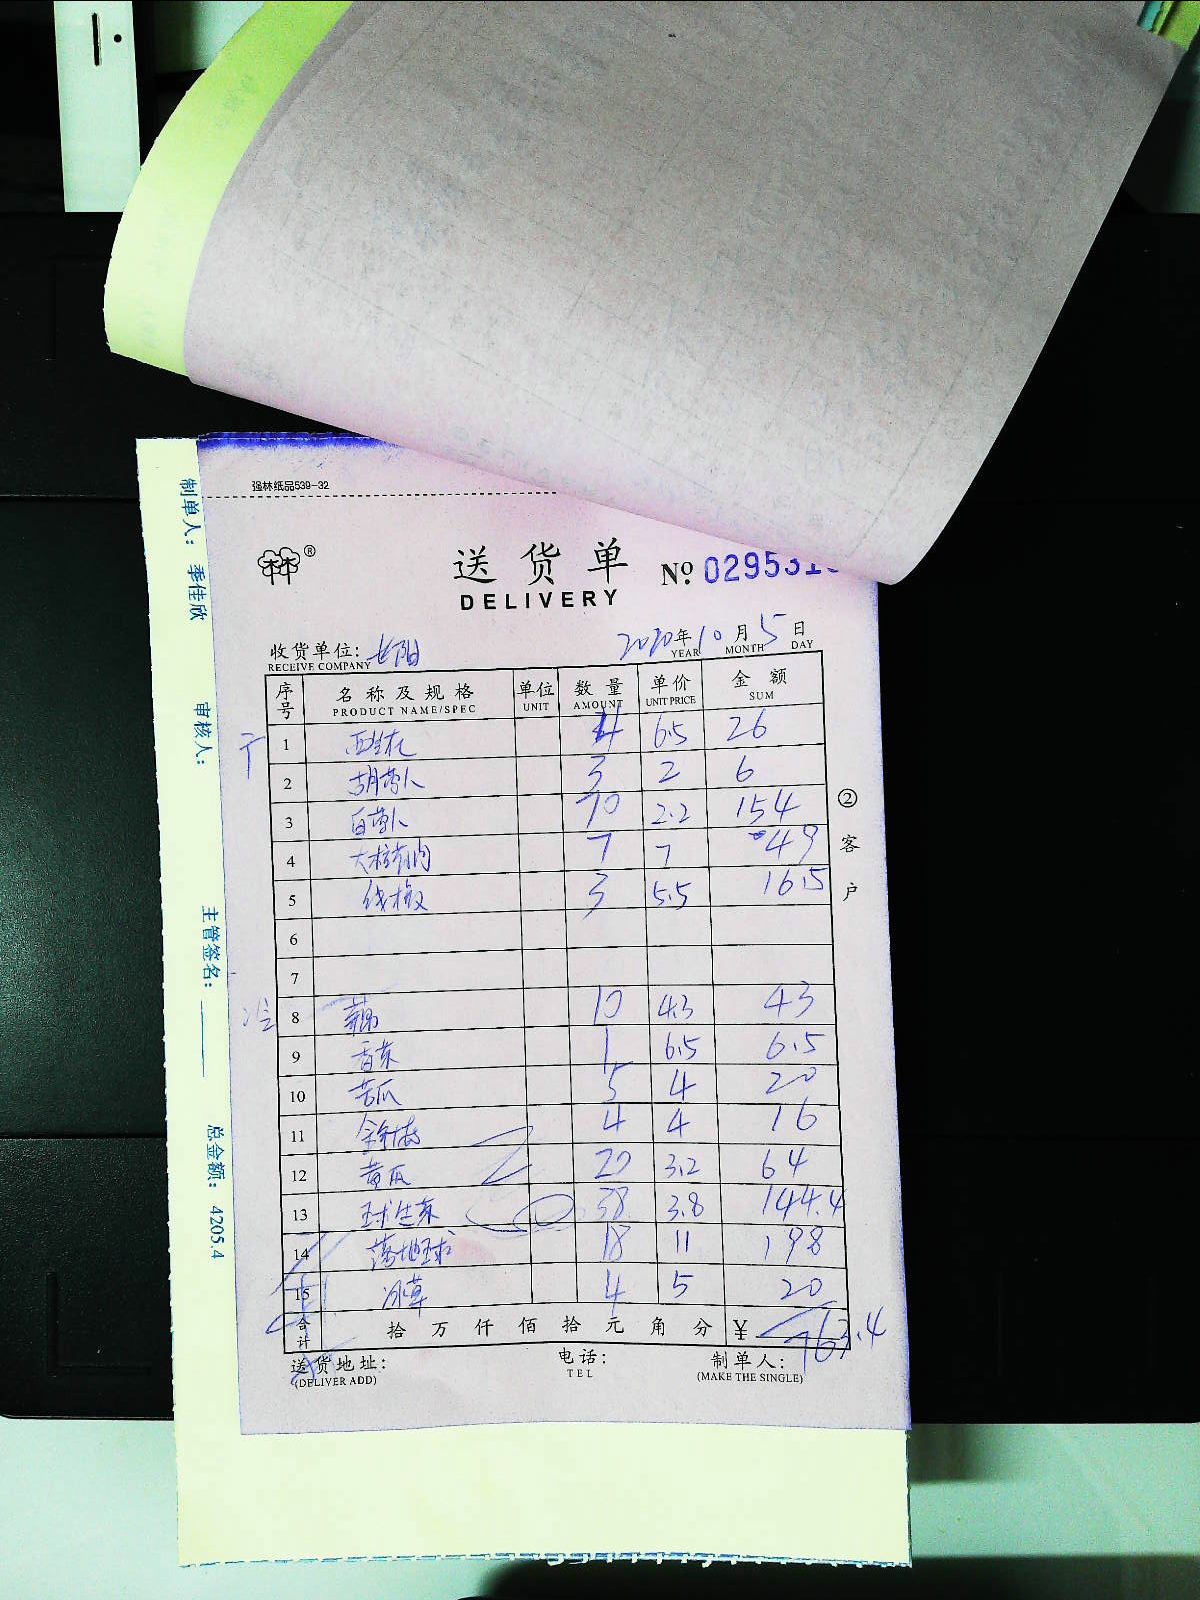 强林纸品539-32
林®
送货单 № 0295313
DELIVERY
收货单位: 长阳 2020年10月5日
RECEIVE COMPANY YEAR MONTH DAY
序号 名称及规格 单位 数量 单价 金额
PRODUCT NAME/SPEC UNIT AMOUNT UNIT PRICE SUM
1 西生花 4 6.5 26
2 胡萝卜 3 2 6
3 白萝卜 70 2.2 154
4 7 7 49
5 线椒 3 5.5 16.5
6
7
8 藕 10 4.3 43
9 香菜 1 6.5 6.5
10 苦瓜 5 4 20
11 4 4 16
12 黄瓜 20 3.2 64
13 球生菜 38 3.8 144.4
14 落地球 18 11 198
15 冰草 4 5 20
合计 拾 万 仟 佰 拾 元 角 分 ¥ 763.4
送货地址: 电话: 制单人:
(DELIVER ADD) TEL (MAKE THE SINGLE)
②客户
制单人: 季佳欣 审核人: 主管签名: 总金额: 4205.4